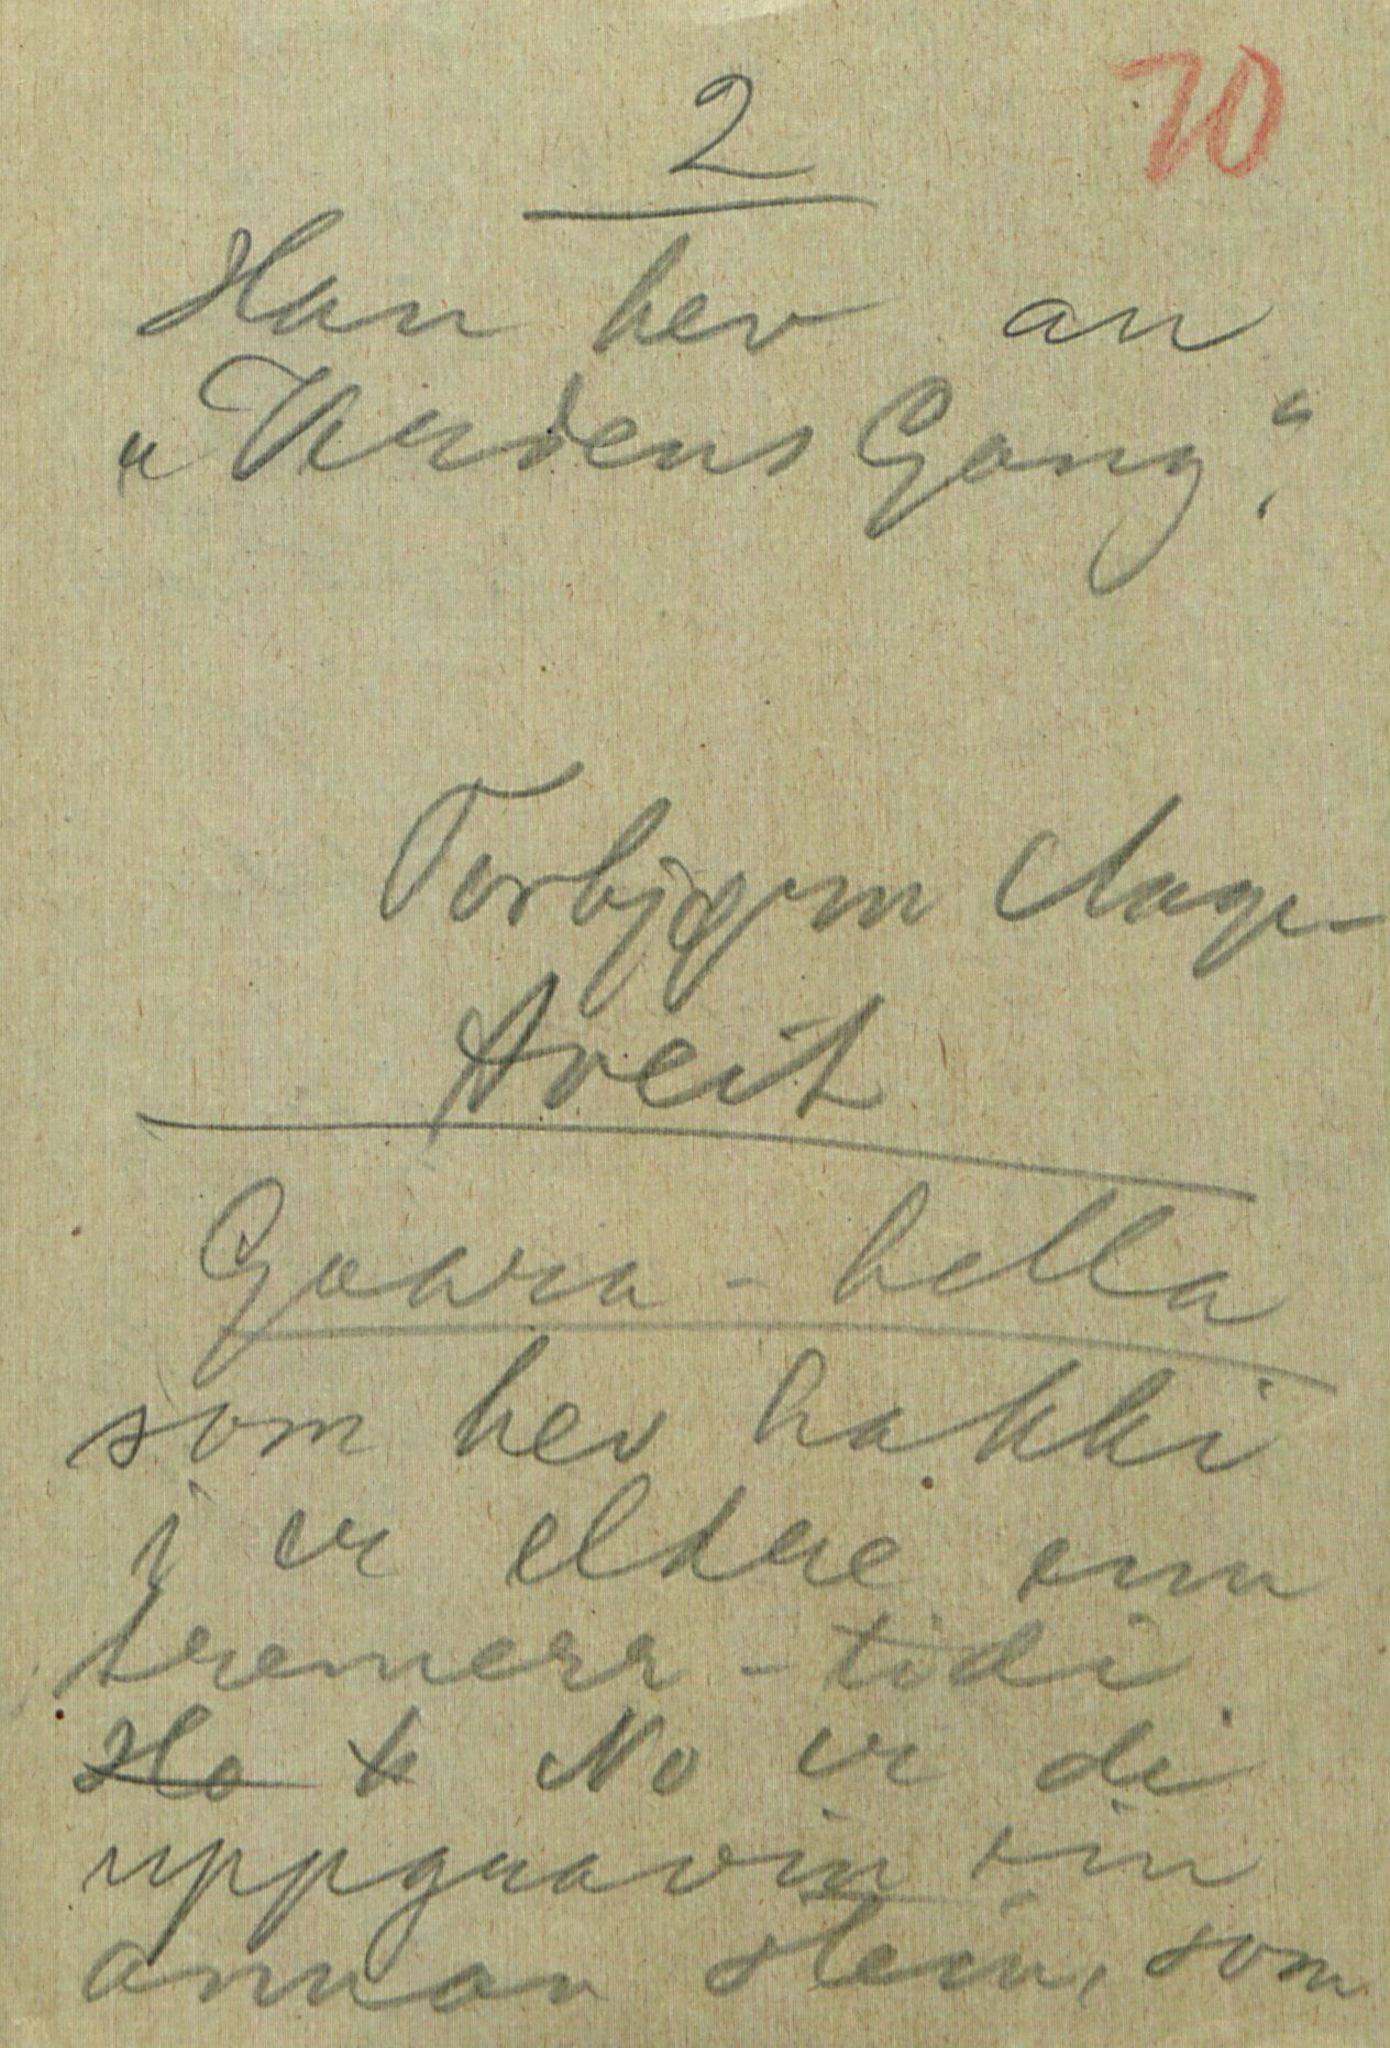 2
70
Han hev an
„Verdens Gang“.
Torbjørn Aage-
tveit
Goavra - hella
som hev hakki
i er eldre enn
tremerr - tidi.
Ho t No er di
uppgravin ein
annan stein, som